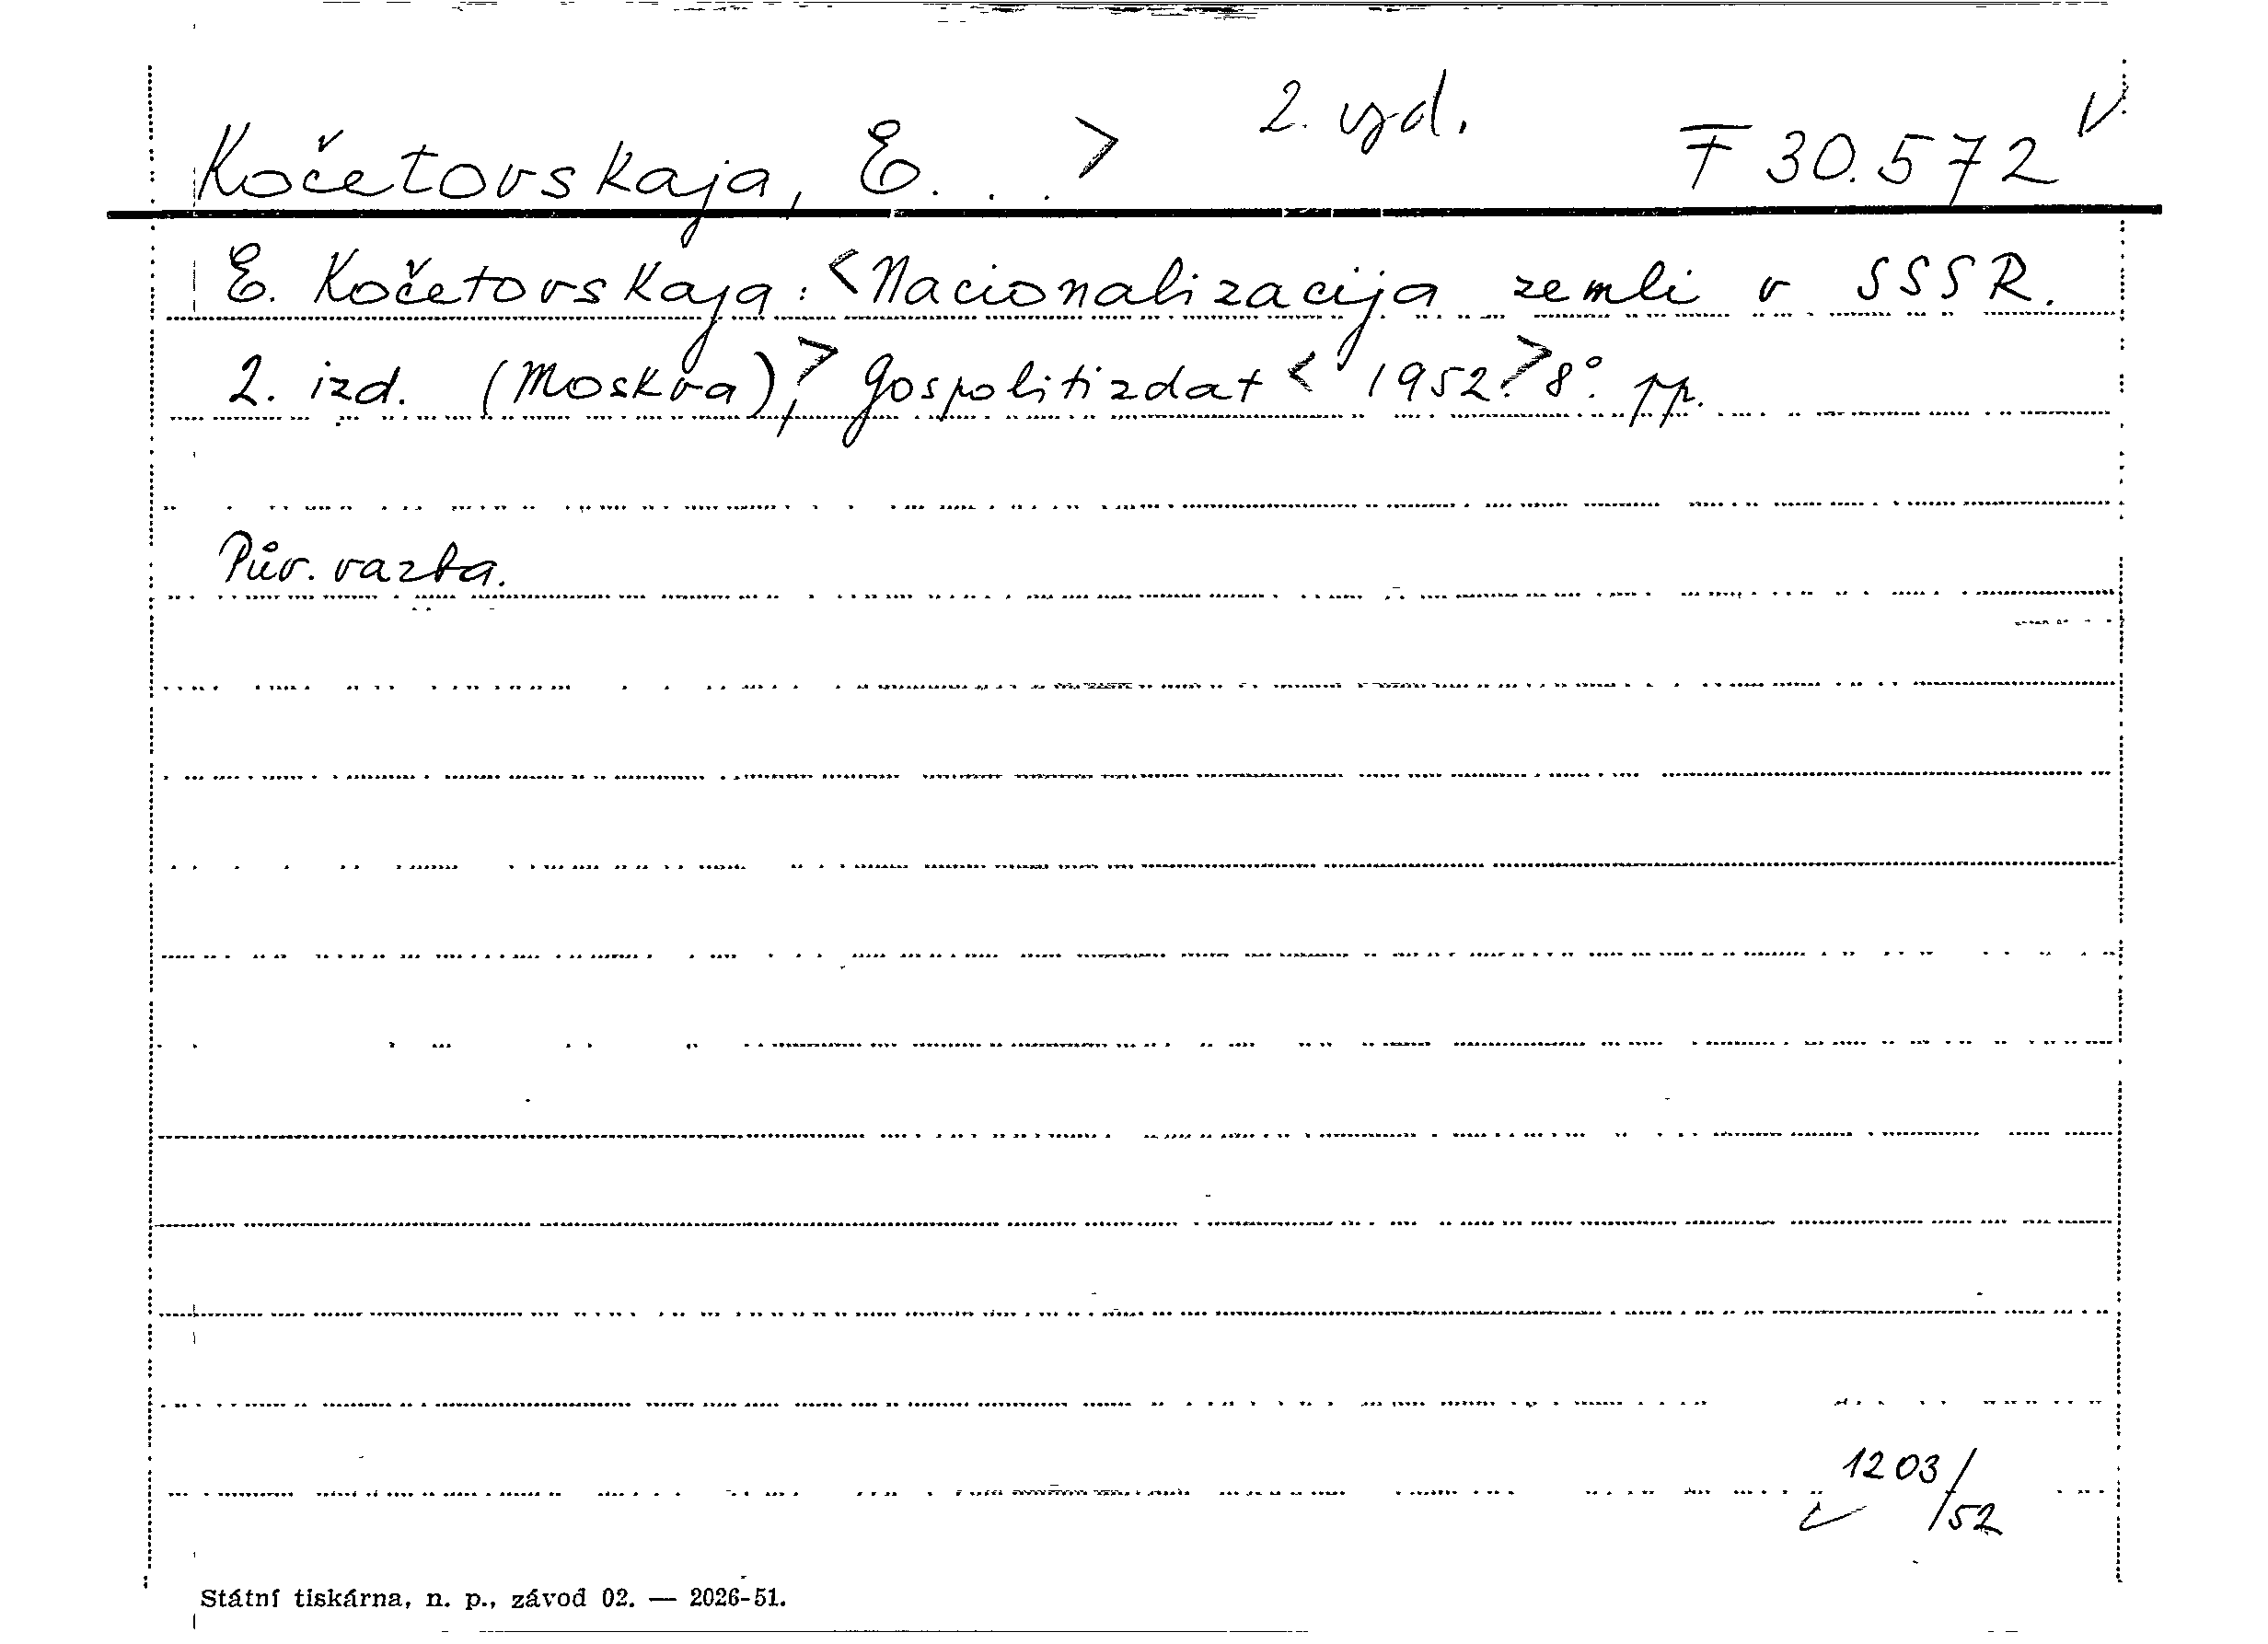 Kočetovskaja, E. . . > 2. vyd. F 30.572 V
E. Kočetovskaja: <Nacionalizacija zemli v SSSR.
2. izd. (Moskva),> Gospolitizdat < 1952.> 8° pp.
Pův. vazba.
1203/52
Státní tiskárna, n. p., závod 02. — 2026-51.